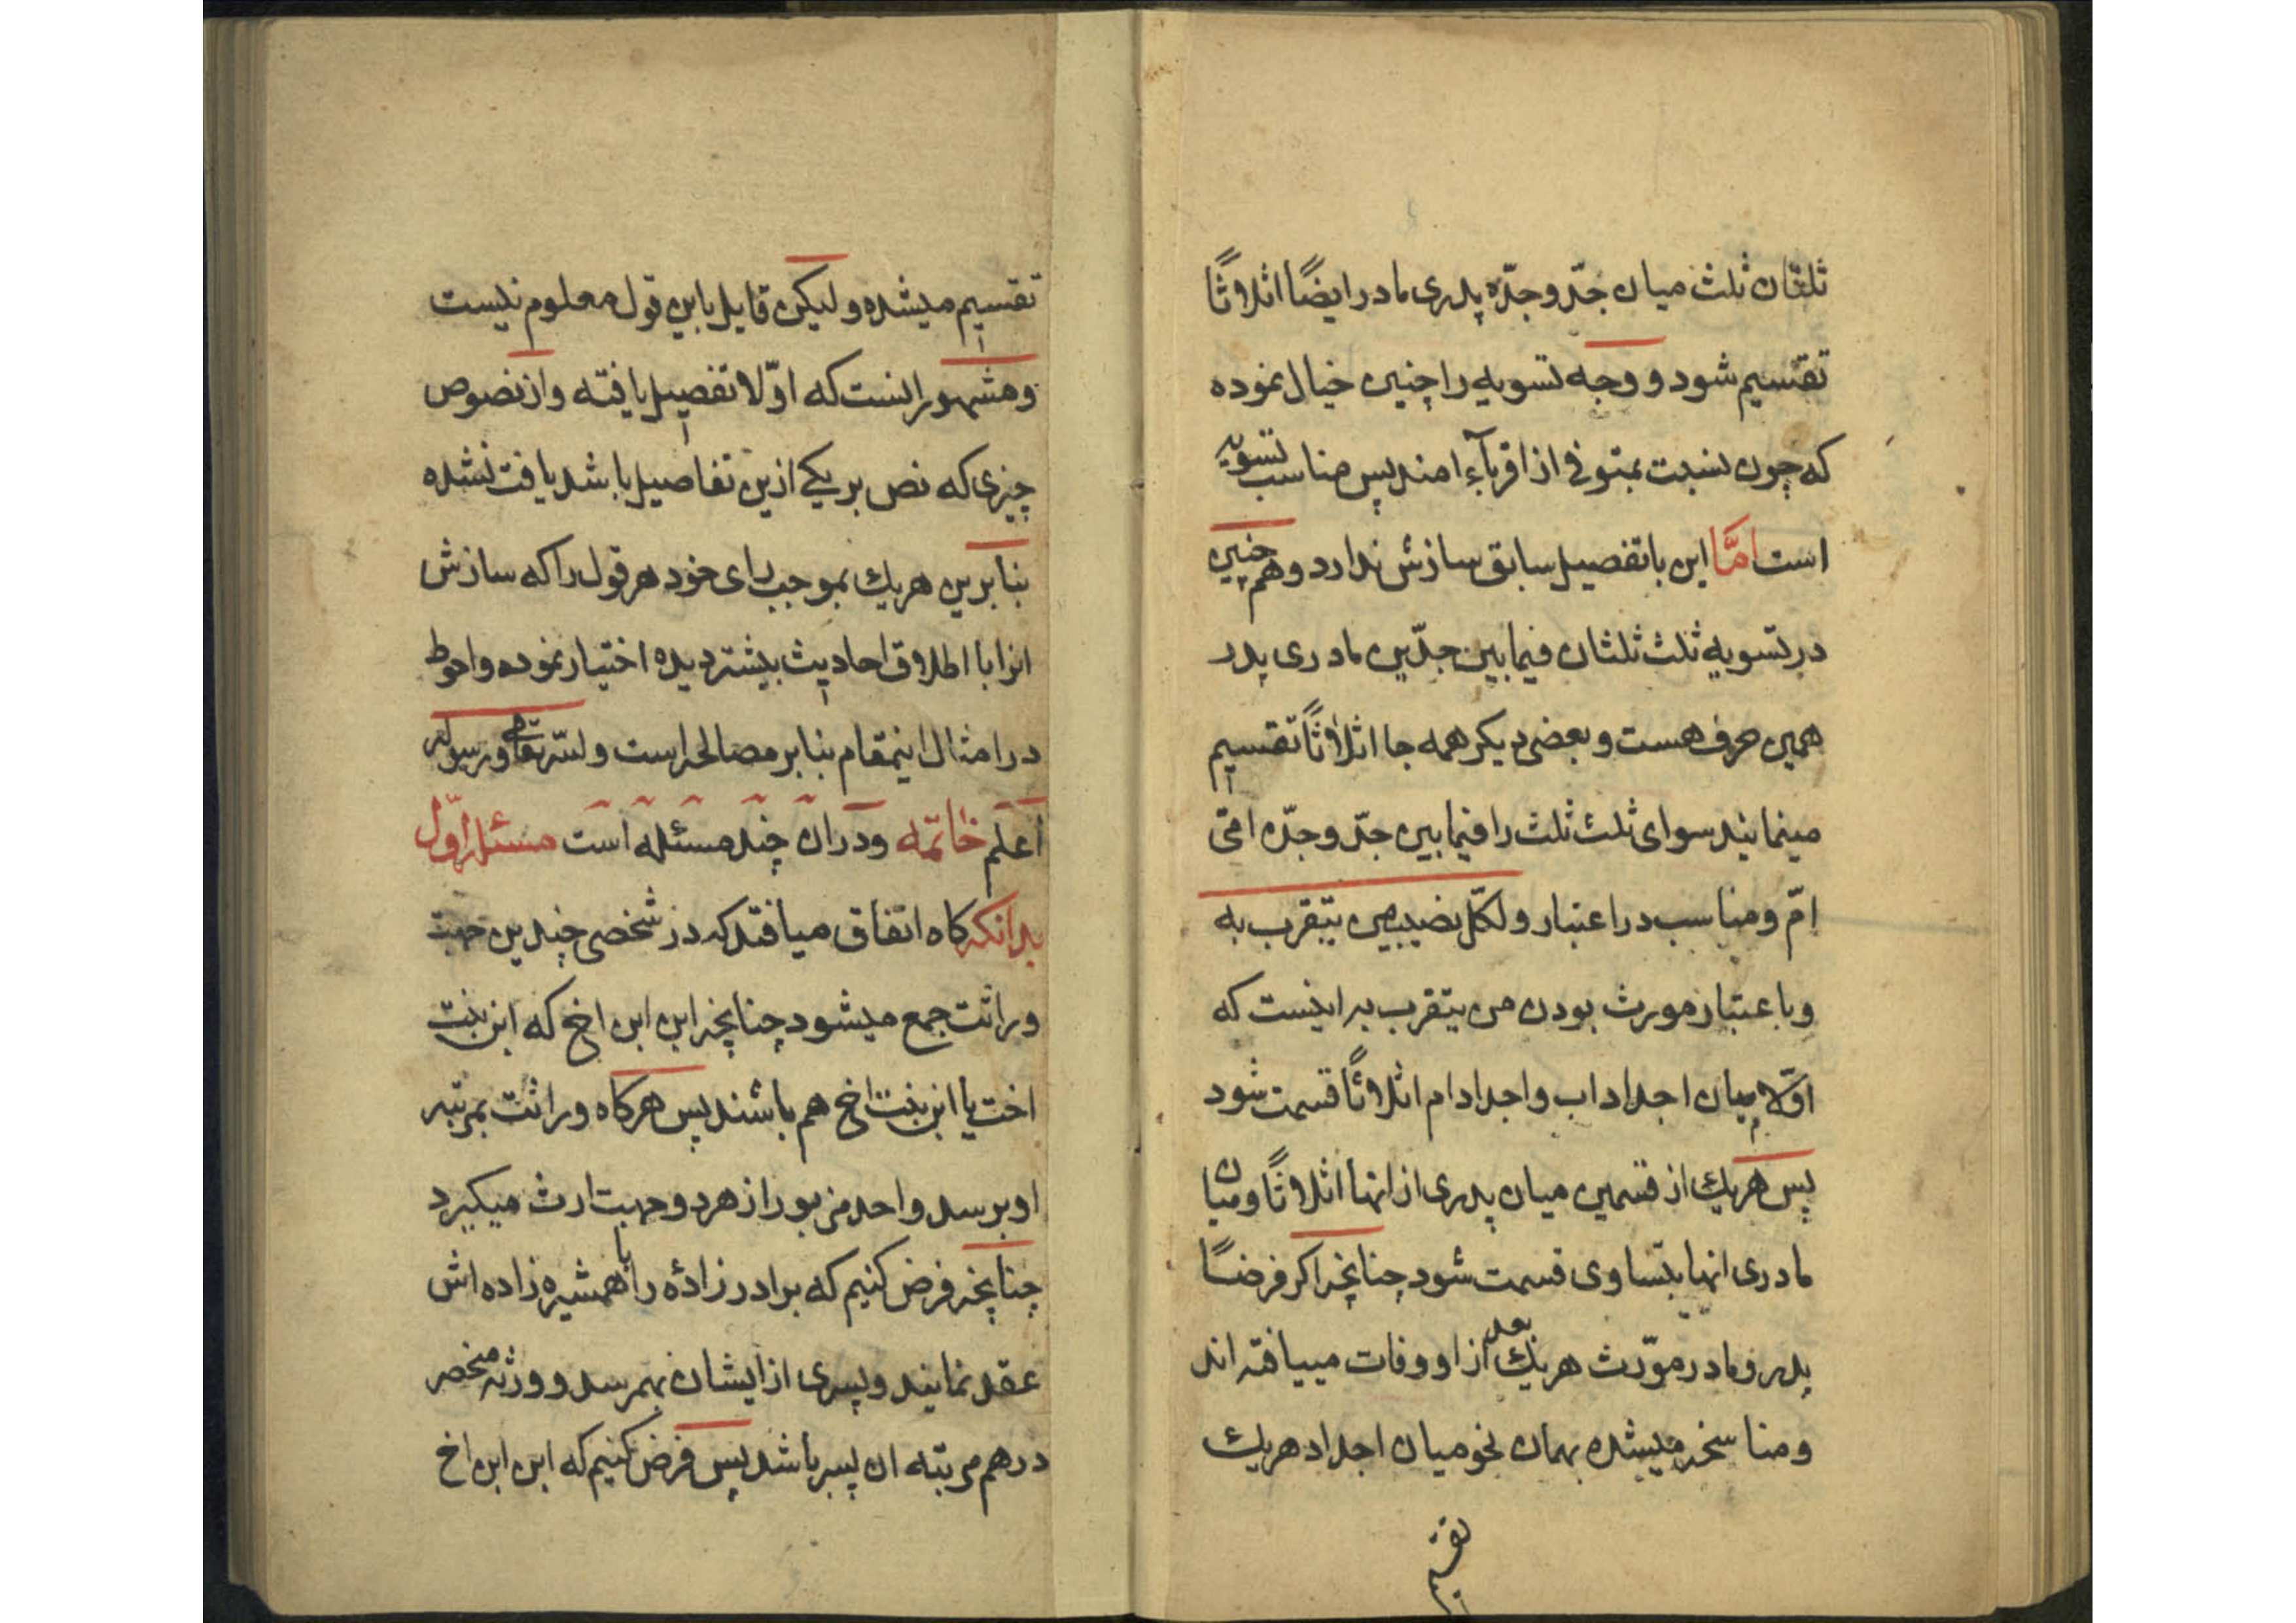 ثلثان ثلث میان جدّ و جدّه پدری مادر ایضًا اثلاثًا
تقسیم شود و وجه تسویه را چنین خیال نموده
که چون نسبت بمتوفی از اقربآء امند پس مناسب تسویه
است امّا این با تفصیل سابق سازش ندارد و هم چنین
در تسویه ثلث ثلثان فیما بین جدّین مادری پدر
همین حرف هست و بعضی دیکر همه جا اثلاثًا تقسیم
مینمایند سوای ثلث ثلث را فیما بین جدّ و جدّه امّی
امّ و مناسب در اعتبار و لکلّ نصیب من یتقرب به
و باعتبار مورث بودن من یتقرب به اینست که
اوّلا میان اجداد اب و اجداد ام اثلاثًا قسمت شود
پس هریك از قسمین میان پدری از انها اثلاثًا و میان
مادری انها بتساوی قسمت شود چنانچه اکر فرضًا
پدر و مادر مورّث هریك بعد از او وفات مییافته اند
و مناسخه میشده بهمان نحو میان اجداد هریك
تقسیم
تقسیم میشده و لیکن قایل باین قول معلوم نیست
و مشهور اینست که اوّلا تفصیل یافته و از نصوص
چیزی که نص بر یکے ازین تفاصیل باشد یافت نشده
بنا برین هریك بموجب رای خود هر قول را که سازش
انرا با اطلاق احادیث بیشتر دیده اختیار نموده و احوط
در امثال اینمقام بنا بر مصالحه است و الله تعالی و رسوله
اعلم خاتمه و در ان چند مسئله است مسئله اوّل
بدانکه کاه اتفاق میافتد که در شخصی چندین جهت
وراثت جمع میشود چنانچه ابن ابن اخ که ابن بنت
اخت یا ابن بنت اخ هم باشند پس هرکاه وراثت بمرتبه
او برسد واحد مزبور از هر دو جهت ارث میکیرد
چنانچه فرض کنیم که برادر زادۀ را با همشیره زاده اش
عقد نمایند و پسری از ایشان بهمرسد و ورثه منحصر
در هم مرتبه ان پسر باشد پس فرض کنیم که ابن ابن اخ